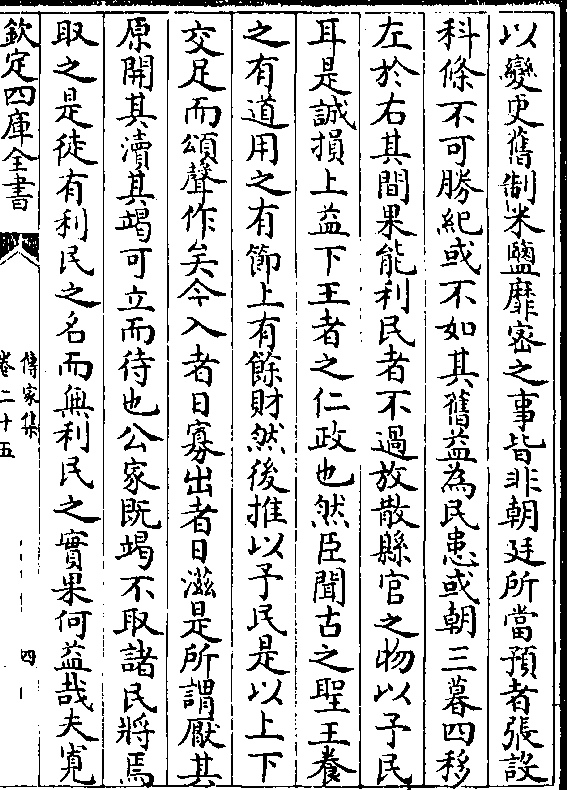 以變更舊制米鹽靡密之事皆非朝廷所當預者張設
科條不可勝紀或不如其舊益為民患或朝三暮四移
左於右其間果能利民者不過放散縣官之物以予民
耳是誠損上益下王者之仁政也然臣聞古之聖王養
之有道用之有節上有餘財然後推以予民是以上下
交足而頌聲作矣今入者日寡出者日滋是所謂厭其
原開其瀆其竭可立而待也公家既竭不取諸民將焉
取之是徒有利民之名而無利民之實果何益哉夫寛
欽定四庫全書
傳家集
卷二十五
四